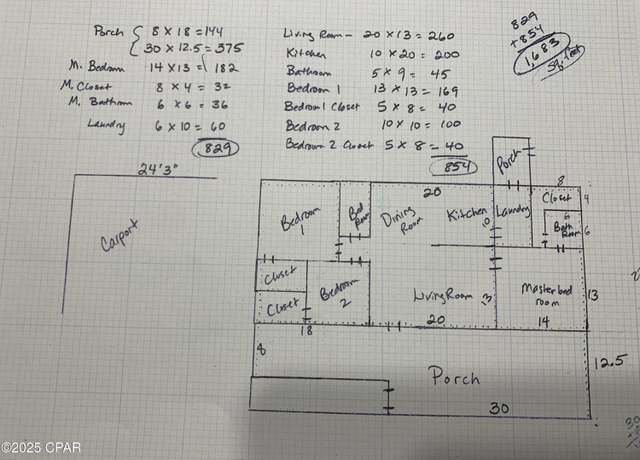 Porch 8 x 18 = 144
30 x 12.5 = 375
M. Bedroom 14 x 13 = 182
M. Closet 8 x 4 = 32
M. Bathroom 6 x 6 = 36
Laundry 6 x 10 = 60
829
Living Room - 20 x 13 = 260
Kitchen 10 x 20 = 200
Bathroom 5 x 9 = 45
Bedroom 1 13 x 13 = 169
Bedroom 1 Closet 5 x 8 = 40
Bedroom 2 10 x 10 = 100
Bedroom 2 Closet 5 x 8 = 40
854
829
+854
1,683
sq. feet
24'3"
Carport
Porch
20
8
Closet
4
Bedroom
1
Dining
Room
Kitchen
10
Laundry
6
Bath
Room
6
Closet
Closet
Bedroom
2
Living Room
13
20
Master bed
room
14
13
18
8
Porch
12.5
30
©2025 CPAR